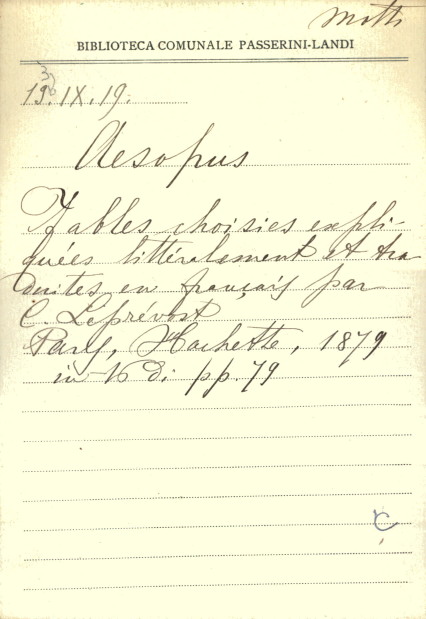 Motti
BIBLIOTECA COMUNALE PASSERINI-LANDI
13.IX.19.
Aesopus
Fables choisies expli-
quées littéralement et tra
duites en français par
C. Leprévost
Paris, Hachette, 1879
in 16 di pp. 79
C